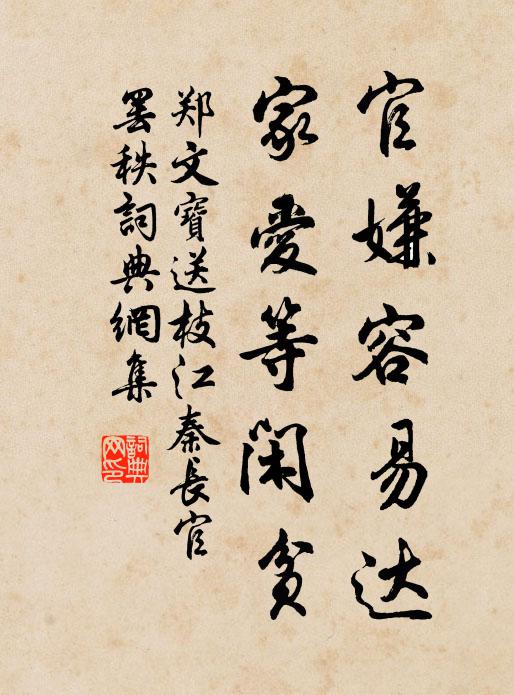 官嫌容易达
家爱等闲贫
郑文寶送枝江秦長官
罢秩詞典網集
詞典
网印